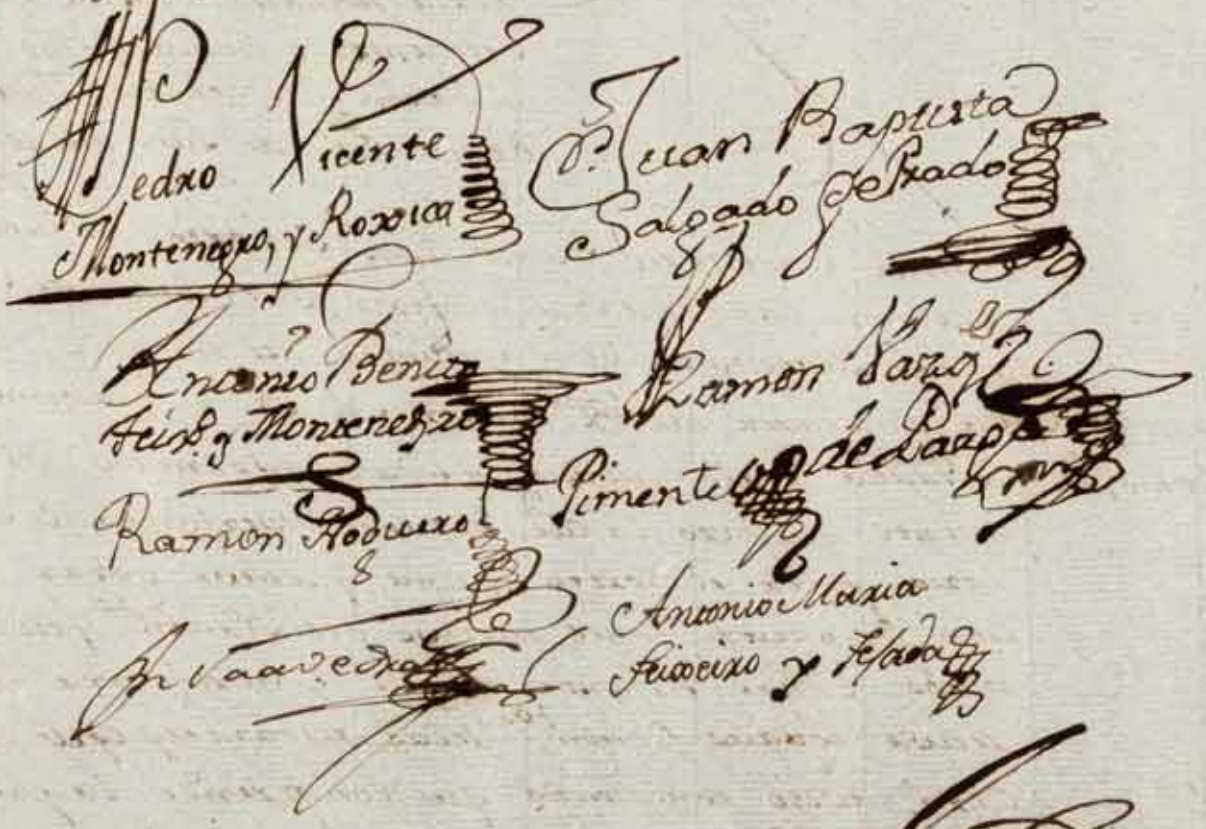 Pedro Vicente
Montenegro, y Roxica
Dn. Juan Baptista
Salgado de Prado
Antonio Benito
Feixo. y Montenegro
Ramon Varg
Pimentel de Parga
Ramon Noduero
Saavedra
Antonio Maria
Feixoeixo y Tejada